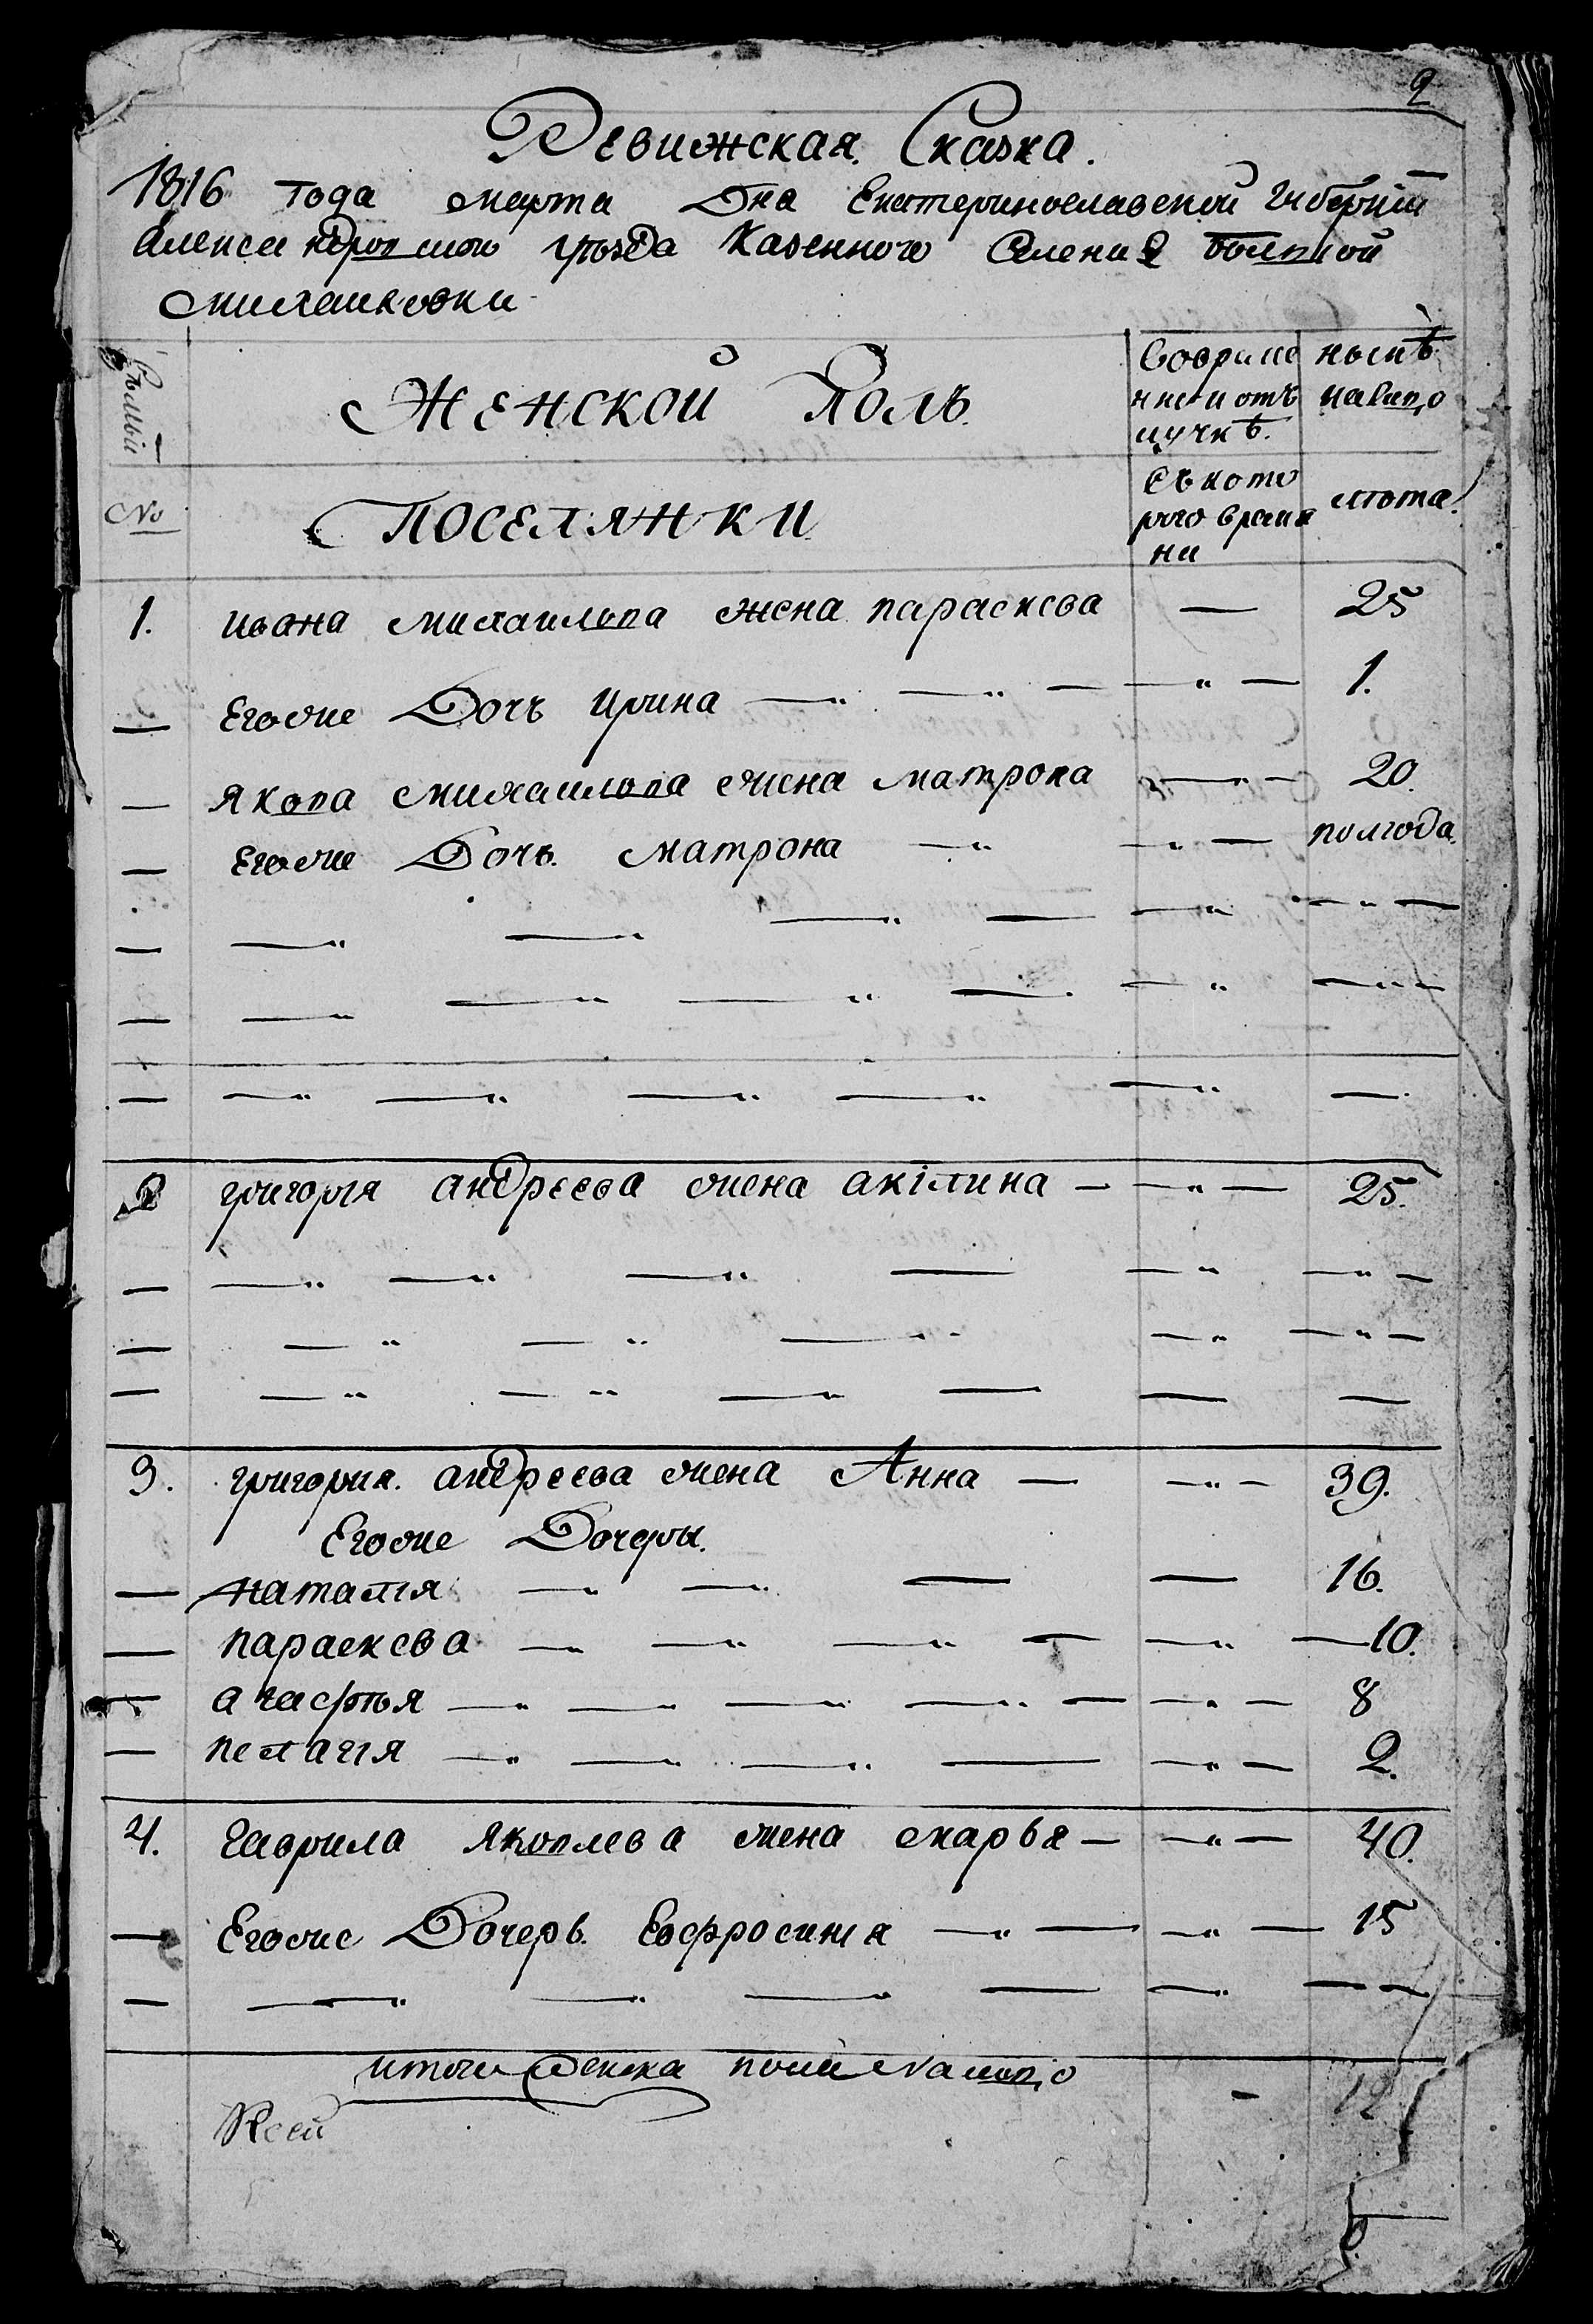 2
Ревижская Сказка.
1816 года марта Дня Екатеринославской Губернии
Александровского уѣзда Казенного Селения Большой
Михайловки
Семьи
Женской Полъ.
Во время
нной отъ
лучкѣ.
нынѣ
налицо
№
Поселянки
Съ кото
рого време
ни
лѣта.
1. ивана михаилова жена параскева — 25
— Егоже Дочь ирина — " — 1.
— якова михаилова жена матрона — " — 20.
— Егоже Дочь. матрона — " — полгода.
2 григорія андреева жена акілина — " — 25.
3. григория. андреева жена Анна — " — 39.
Егоже Дочеры.
— наталія — — 16.
— параскева — " — 10.
— агафья — " — 8
— пелагія — " — 2.
4. гаврила яковлева жена марья — " — 40.
— Егоже Дочерь. Евфросинія — " — 15
итого женска пола налицо - 12